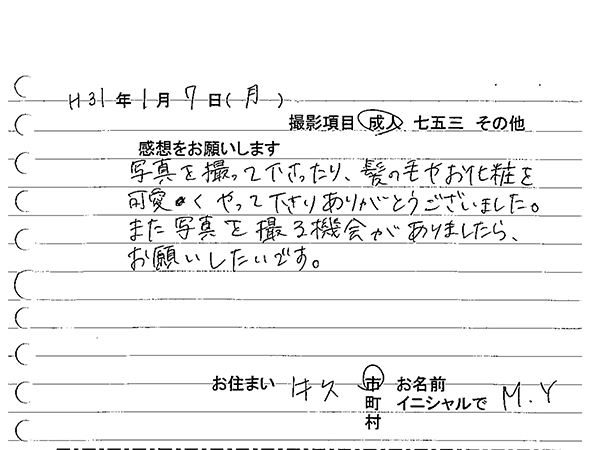 H31年1月7日(月)
撮影項目 成人 七五三 その他
感想をお願いします
写真を撮って下さったり、髪の毛やお化粧を
可愛くやって下さりありがとうございました。
また写真を撮る機会がありましたら、
お願いしたいです。
お住まい 市 お名前
町 イニシャルで M.Y
村